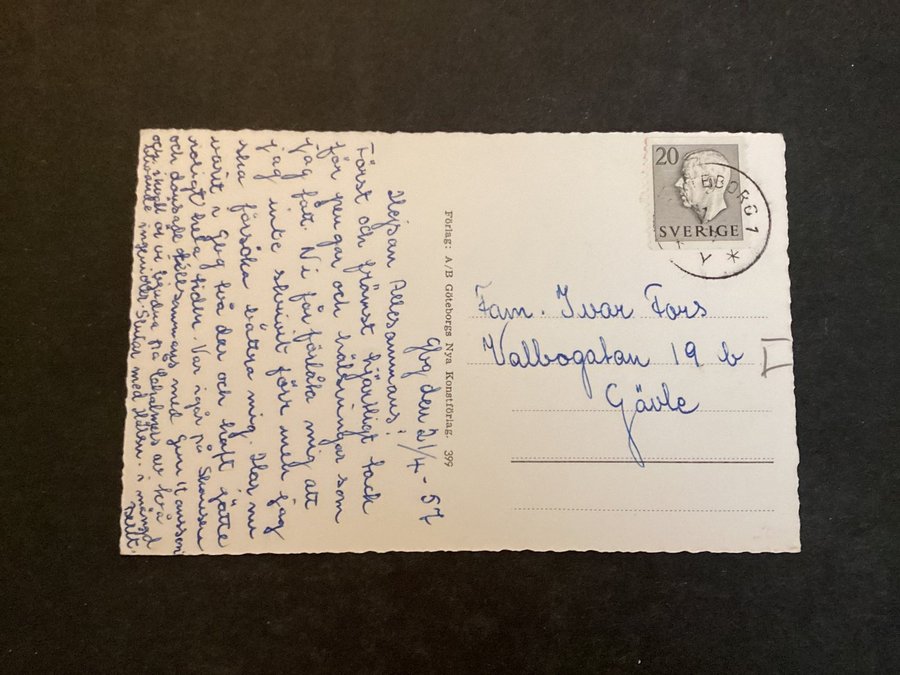 Gbg den 21/4 - 57
Hejsan Allesammans!
Först och främst hjärtligt tack
för pengar och hälsningar som
jag fått. Ni får förlåta mig att
jag inte skrivit förr men jag
ska försöka bättra mig. Har nu
varit i Gbg två der och haft jätte
roligt hela tiden. Var igår på
och dansade tillsammans med Gun
och ikväll är vi bjudna på Chalmers av två
blivande ingenjörer. Slutar med Hälsn. i mängd
Förlag: A/B Göteborgs Nya Konstförlag. 399
20
SVERIGE
TEBORG 1
Fam. Ivar Fors
Valbogatan 19 b
Gävle